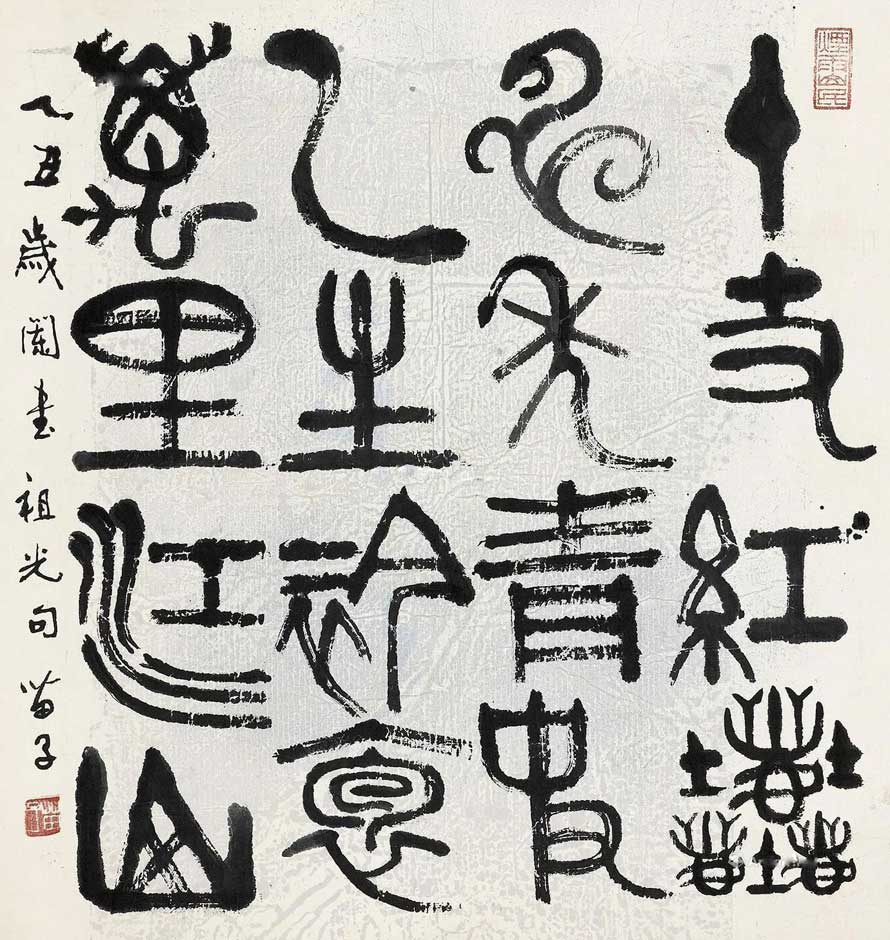 十丈紅塵
千年青史
一生
萬里江山
乙丑歲闌書祖光句苗子